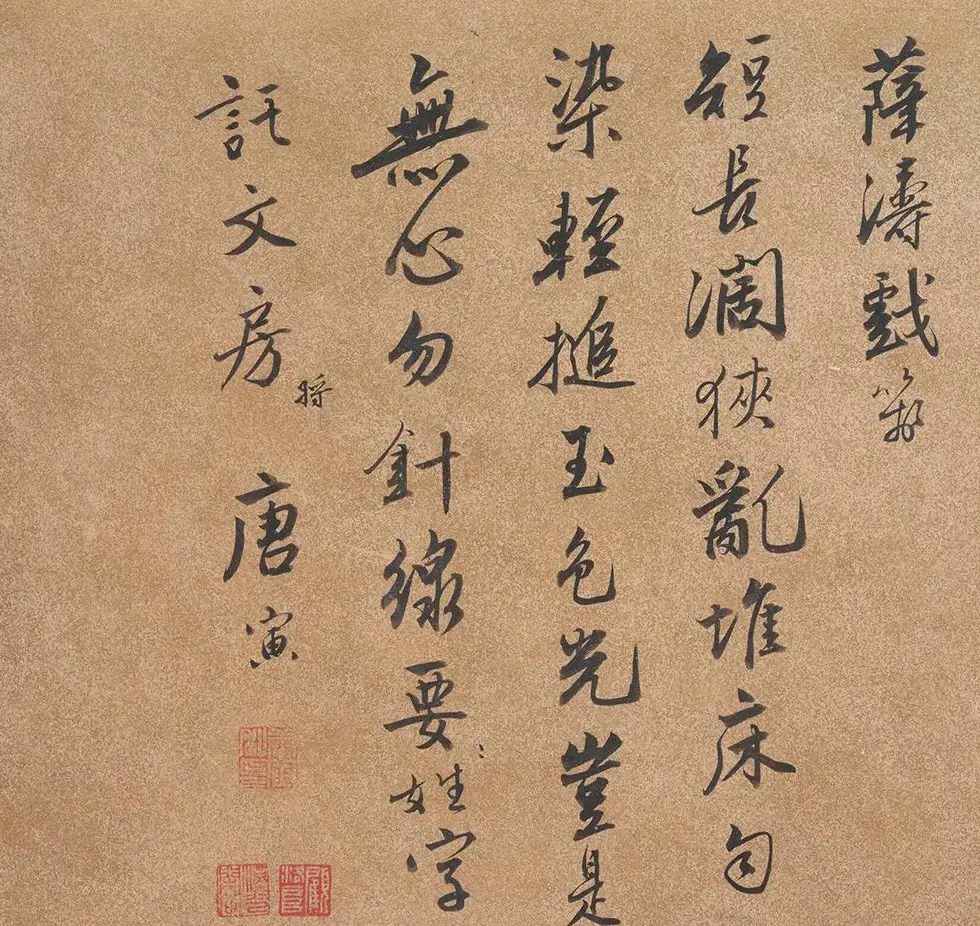 薛濤戲箋
短長濶狹亂堆床匀
染輕搥玉色光豈是
無心勿針線要姓字
託文房 將 唐寅